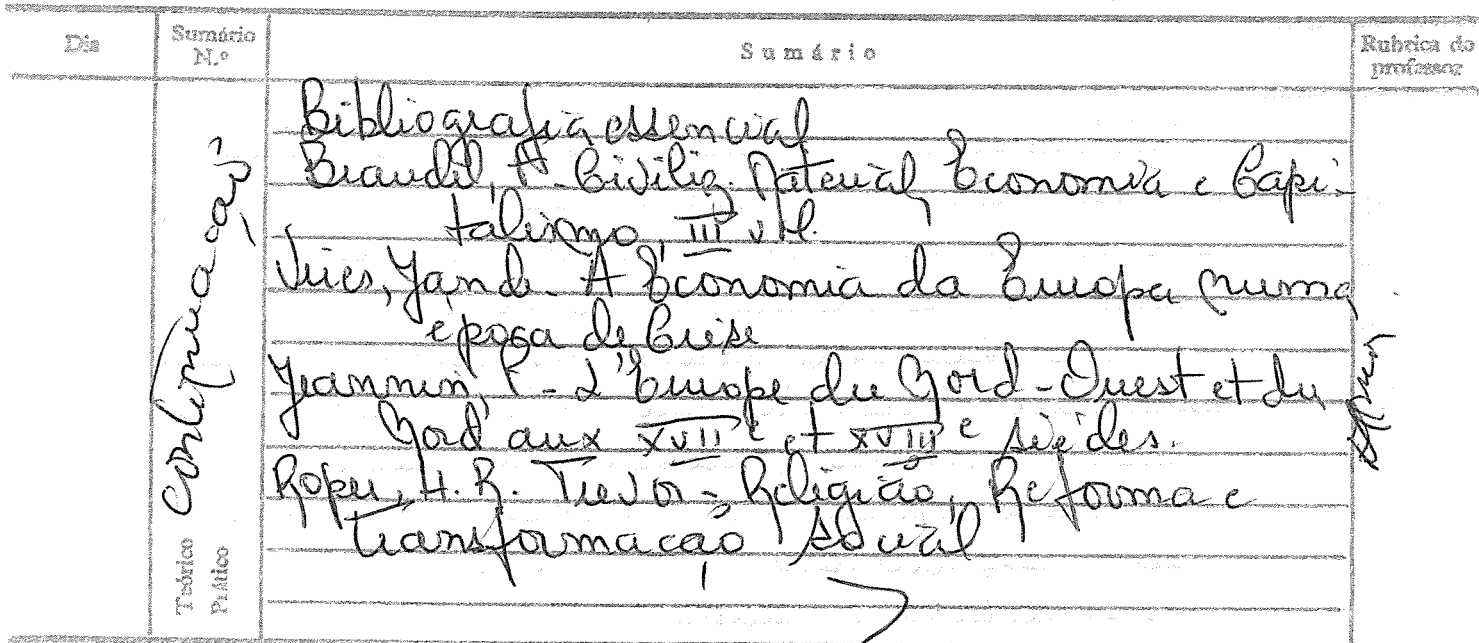 Dia
Sumário N.º
Sumário
Rubrica do professor
continuação
Teórico
Prático
Bibliografia essencial
Braudel, F. - Civiliz. Material Economia e Capi-
talismo, III vol.
Vries, Jan de - A Economia da Europa numa
época de Crise
Jeannin, P. - L'Europe du Nord-Ouest et du
Nord aux XVIIe et XVIIIe siècles.
Roper, H. R. Trevor - Religião, Reforma e
Transformação Social